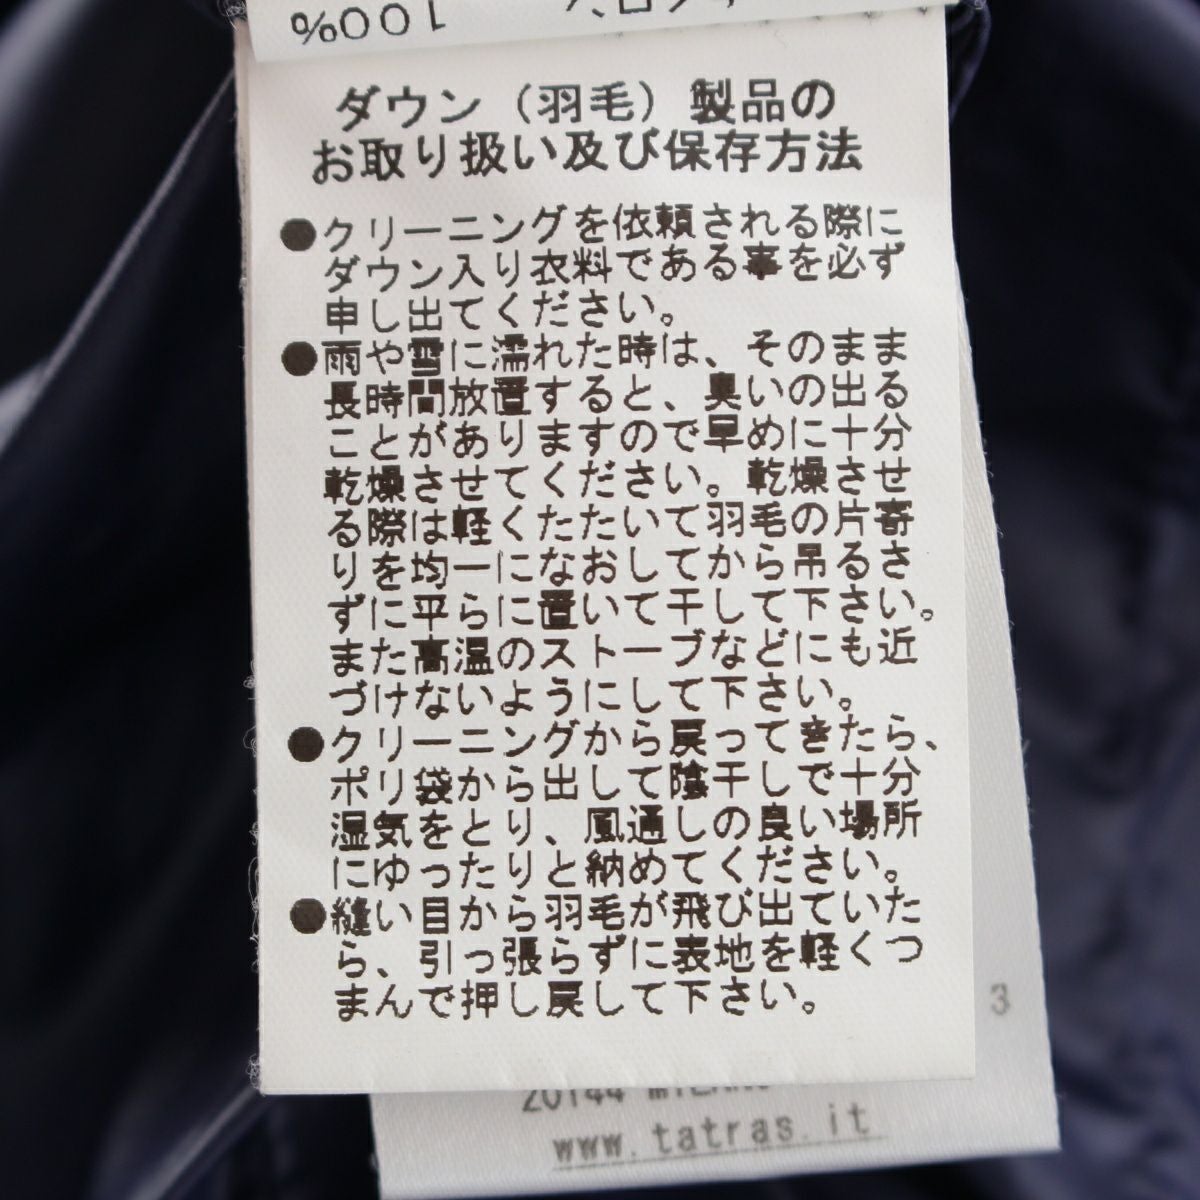 100%
ダウン（羽毛）製品の
お取り扱い及び保存方法
●クリーニングを依頼される際に
ダウン入り衣料である事を必ず
申し出てください。
●雨や雪に濡れた時は、そのまま
長時間放置すると、臭いの出る
ことがありますので早めに十分
乾燥させてください。乾燥させ
る際は軽くたたいて羽毛の片寄
りを均一になおしてから吊るさ
ずに平らに置いて干して下さい。
また高温のストーブなどにも近
づけないようにして下さい。
●クリーニングから戻ってきたら、
ポリ袋から出して陰干しで十分
湿気をとり、風通しの良い場所
にゆったりと納めてください。
●縫い目から羽毛が飛び出ていた
ら、引っ張らずに表地を軽くつ
まんで押し戻して下さい。
3
20144 MILANO
www.tatras.it